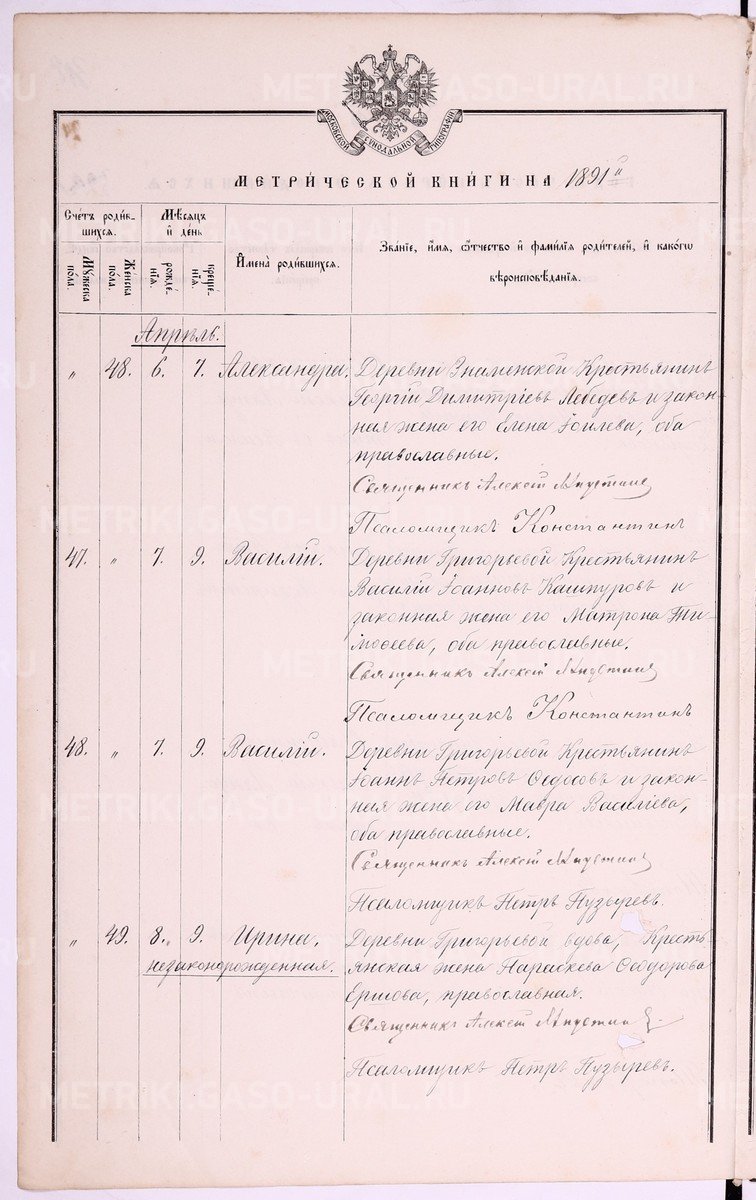 МОСКОВСКОЙ СѴНОДАЛЬНОЙ ТИПОГРАФІИ
МЕТРИ́ЧЕСКОЙ КНИ́ГИ НА 1891й
Сче́тъ роди́вшихся.
Мѣ́сяцъ и҆ де́нь
И҆мена̀ роди́вшихся.
Зва́нїе, и҆́мя, ѻ҆́тчество и҆ фами́лїя роди́телей, и҆ како́гѡ
вѣроисповѣ́данїя.
Мꙋ́жеска по́ла.
Же́нска по́ла.
рожде́нїѧ.
креще́нїѧ.
Апрѣль.
„ 48. 6. 7. Александра. Деревни Знаменской Крестьянинъ
Георгій Димитріевъ Лебедевъ и закон-
ная жена его Елена Іоилева, оба
православные.
Священникъ Алексій
Псаломщикъ Константинъ
47. „ 7. 9. Василій. Деревни Григорьевой Крестьянинъ
Василій Іоанновъ Кашпуровъ и
законная жена его Матрона Ти-
моѳеева, оба православные.
Священникъ Алексій
Псаломщикъ Константинъ
48. „ 7. 9. Василій. Деревни Григорьевой Крестьянинъ
Іоаннъ Петровъ Ѳедосовъ и закон-
ная жена его Мавра Василіева,
оба православные.
Священникъ Алексій
Псаломщикъ Петръ Пузыревъ.
„ 49. 8. 9. Ирина, Деревни Григорьевой вдова, Кресть-
незаконорожденная. янская жена Параскева Ѳеодорова
Ершова, православная.
Священникъ Алексій
Псаломщикъ Петръ Пузыревъ.
METRIKI.GASO-URAL.RU